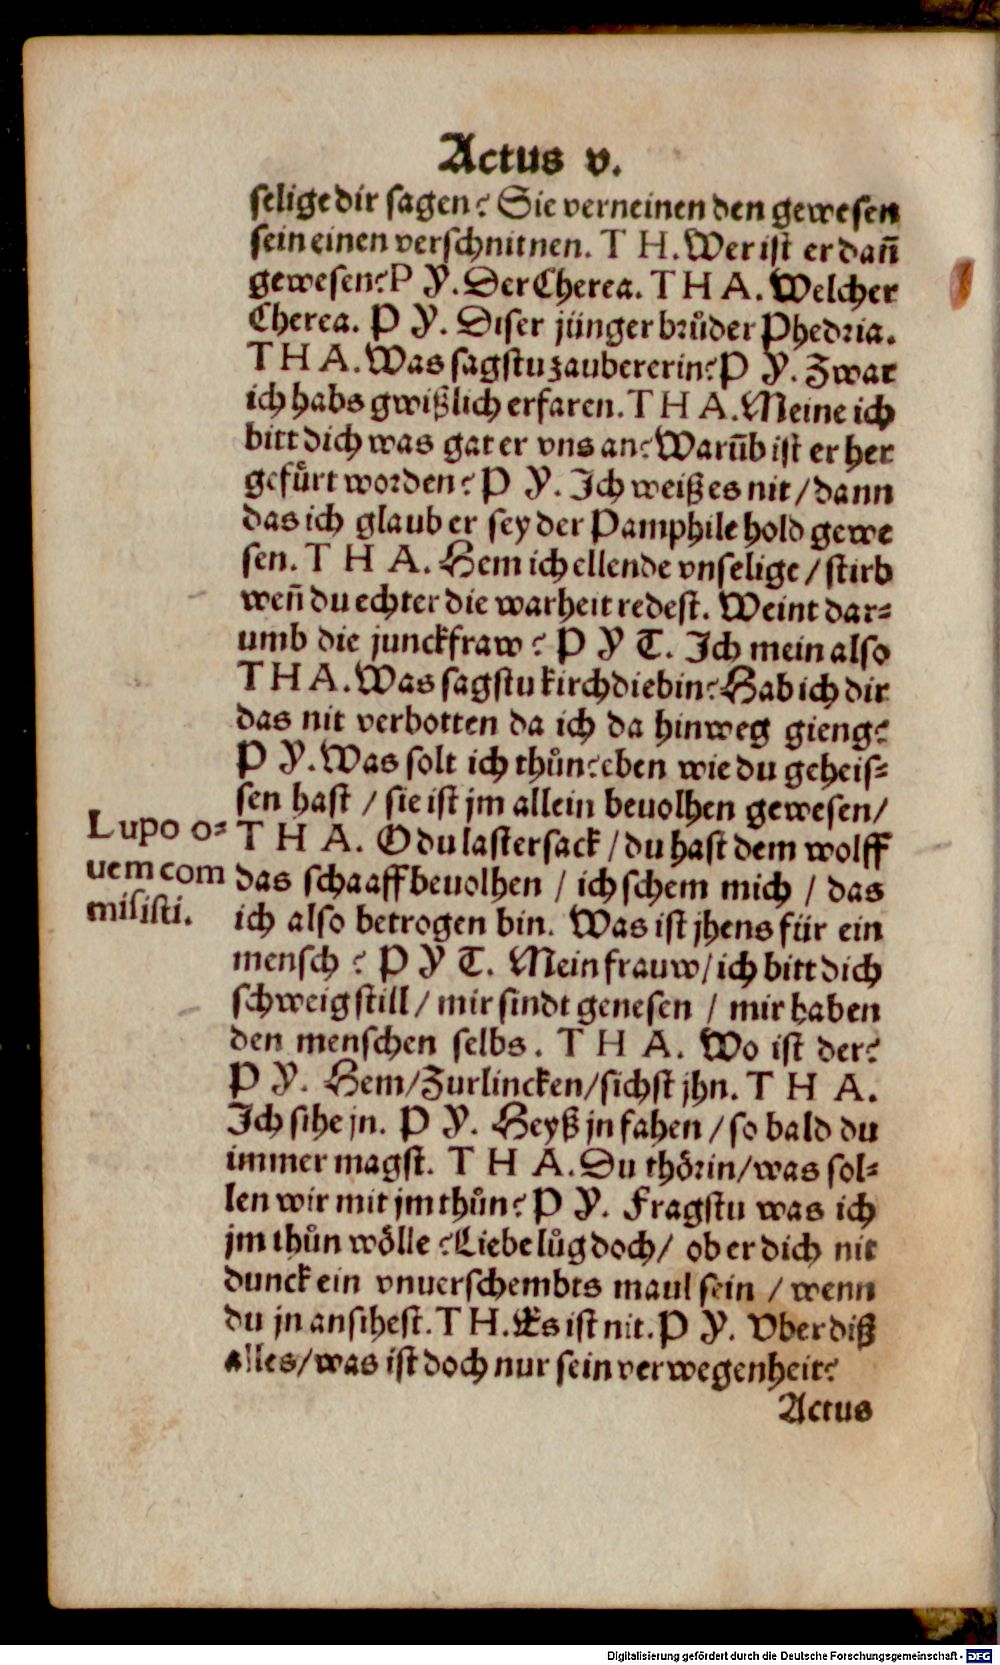 Actus v.
selige dir sagen? Sie verneinen den gewesen
sein einen verschnitnen. T H. Wer ist er dañ
gewesen? P Y. Der Cherea. T H A. Welcher
Cherea. P Y. Diser jünger brůder Phedria.
T H A. Was sagstu zaubererin? P Y. Zwar
ich habs gwißlich erfaren. T H A. Meine ich
bitt dich was gat er vns an? Warūb ist er her
gefürt worden? P Y. Ich weiß es nit / dann
das ich glaub er sey der Pamphile hold gewe
sen. T H A. Hem ich ellende vnselige / stirb
weñ du echter die warheit redest. Weint dar⸗
umb die junckfraw? P Y T. Ich mein also
T H A. Was sagstu kirchdiebin? Hab ich dir
das nit verbotten da ich da hinweg gieng?
P Y. Was solt ich thůn? eben wie du geheis⸗
sen hast / sie ist jm allein beuolhen gewesen /
Lupo o⸗
uem com
misisti.
T H A. O du lastersack / du hast dem wolff
das schaaff beuolhen / ich schem mich / das
ich also betrogen bin. Was ist jhens für ein
mensch? P Y T. Mein frauw / ich bitt dich
schweig still / mir sindt genesen / mir haben
den menschen selbs. T H A. Wo ist der?
P Y. Hem / Zur lincken / sichst jhn. T H A.
Ich sihe jn. P Y. Heyß jn fahen / so bald du
immer magst. T H A. Du thörin / was sol⸗
len wir mit jm thůn? P Y. Fragstu was ich
jm thůn wölle? Liebe lůg doch / ob er dich nit
dunck ein vnuerschembts maul sein / wenn
du jn ansihest. T H. Es ist nit. P Y. Vber diß
alles / was ist doch nur sein verwegenheit?
Actus
Digitalisierung gefördert durch die Deutsche Forschungsgemeinschaft - DFG